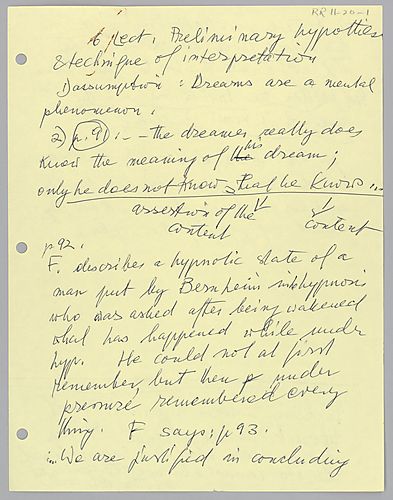 RR 11-20-1
6 Lect. Preliminary hypothes
& technique of interpretation
1) assumption : Dreams are a mental
phenomenon.
2) p. 91 : – – the dreamer really does
know the meaning of the his dream;
only he does not know that he knows ...
assertion of the content
content
p92.
F. describes a hypnotic state of a
man put by Bernheim into hypnosis
who was asked after being wakened
what has happened while under
hyp. He could not at first
remember but then under
pressure remembered every
thing. F says: p93.
"We are justified in concluding